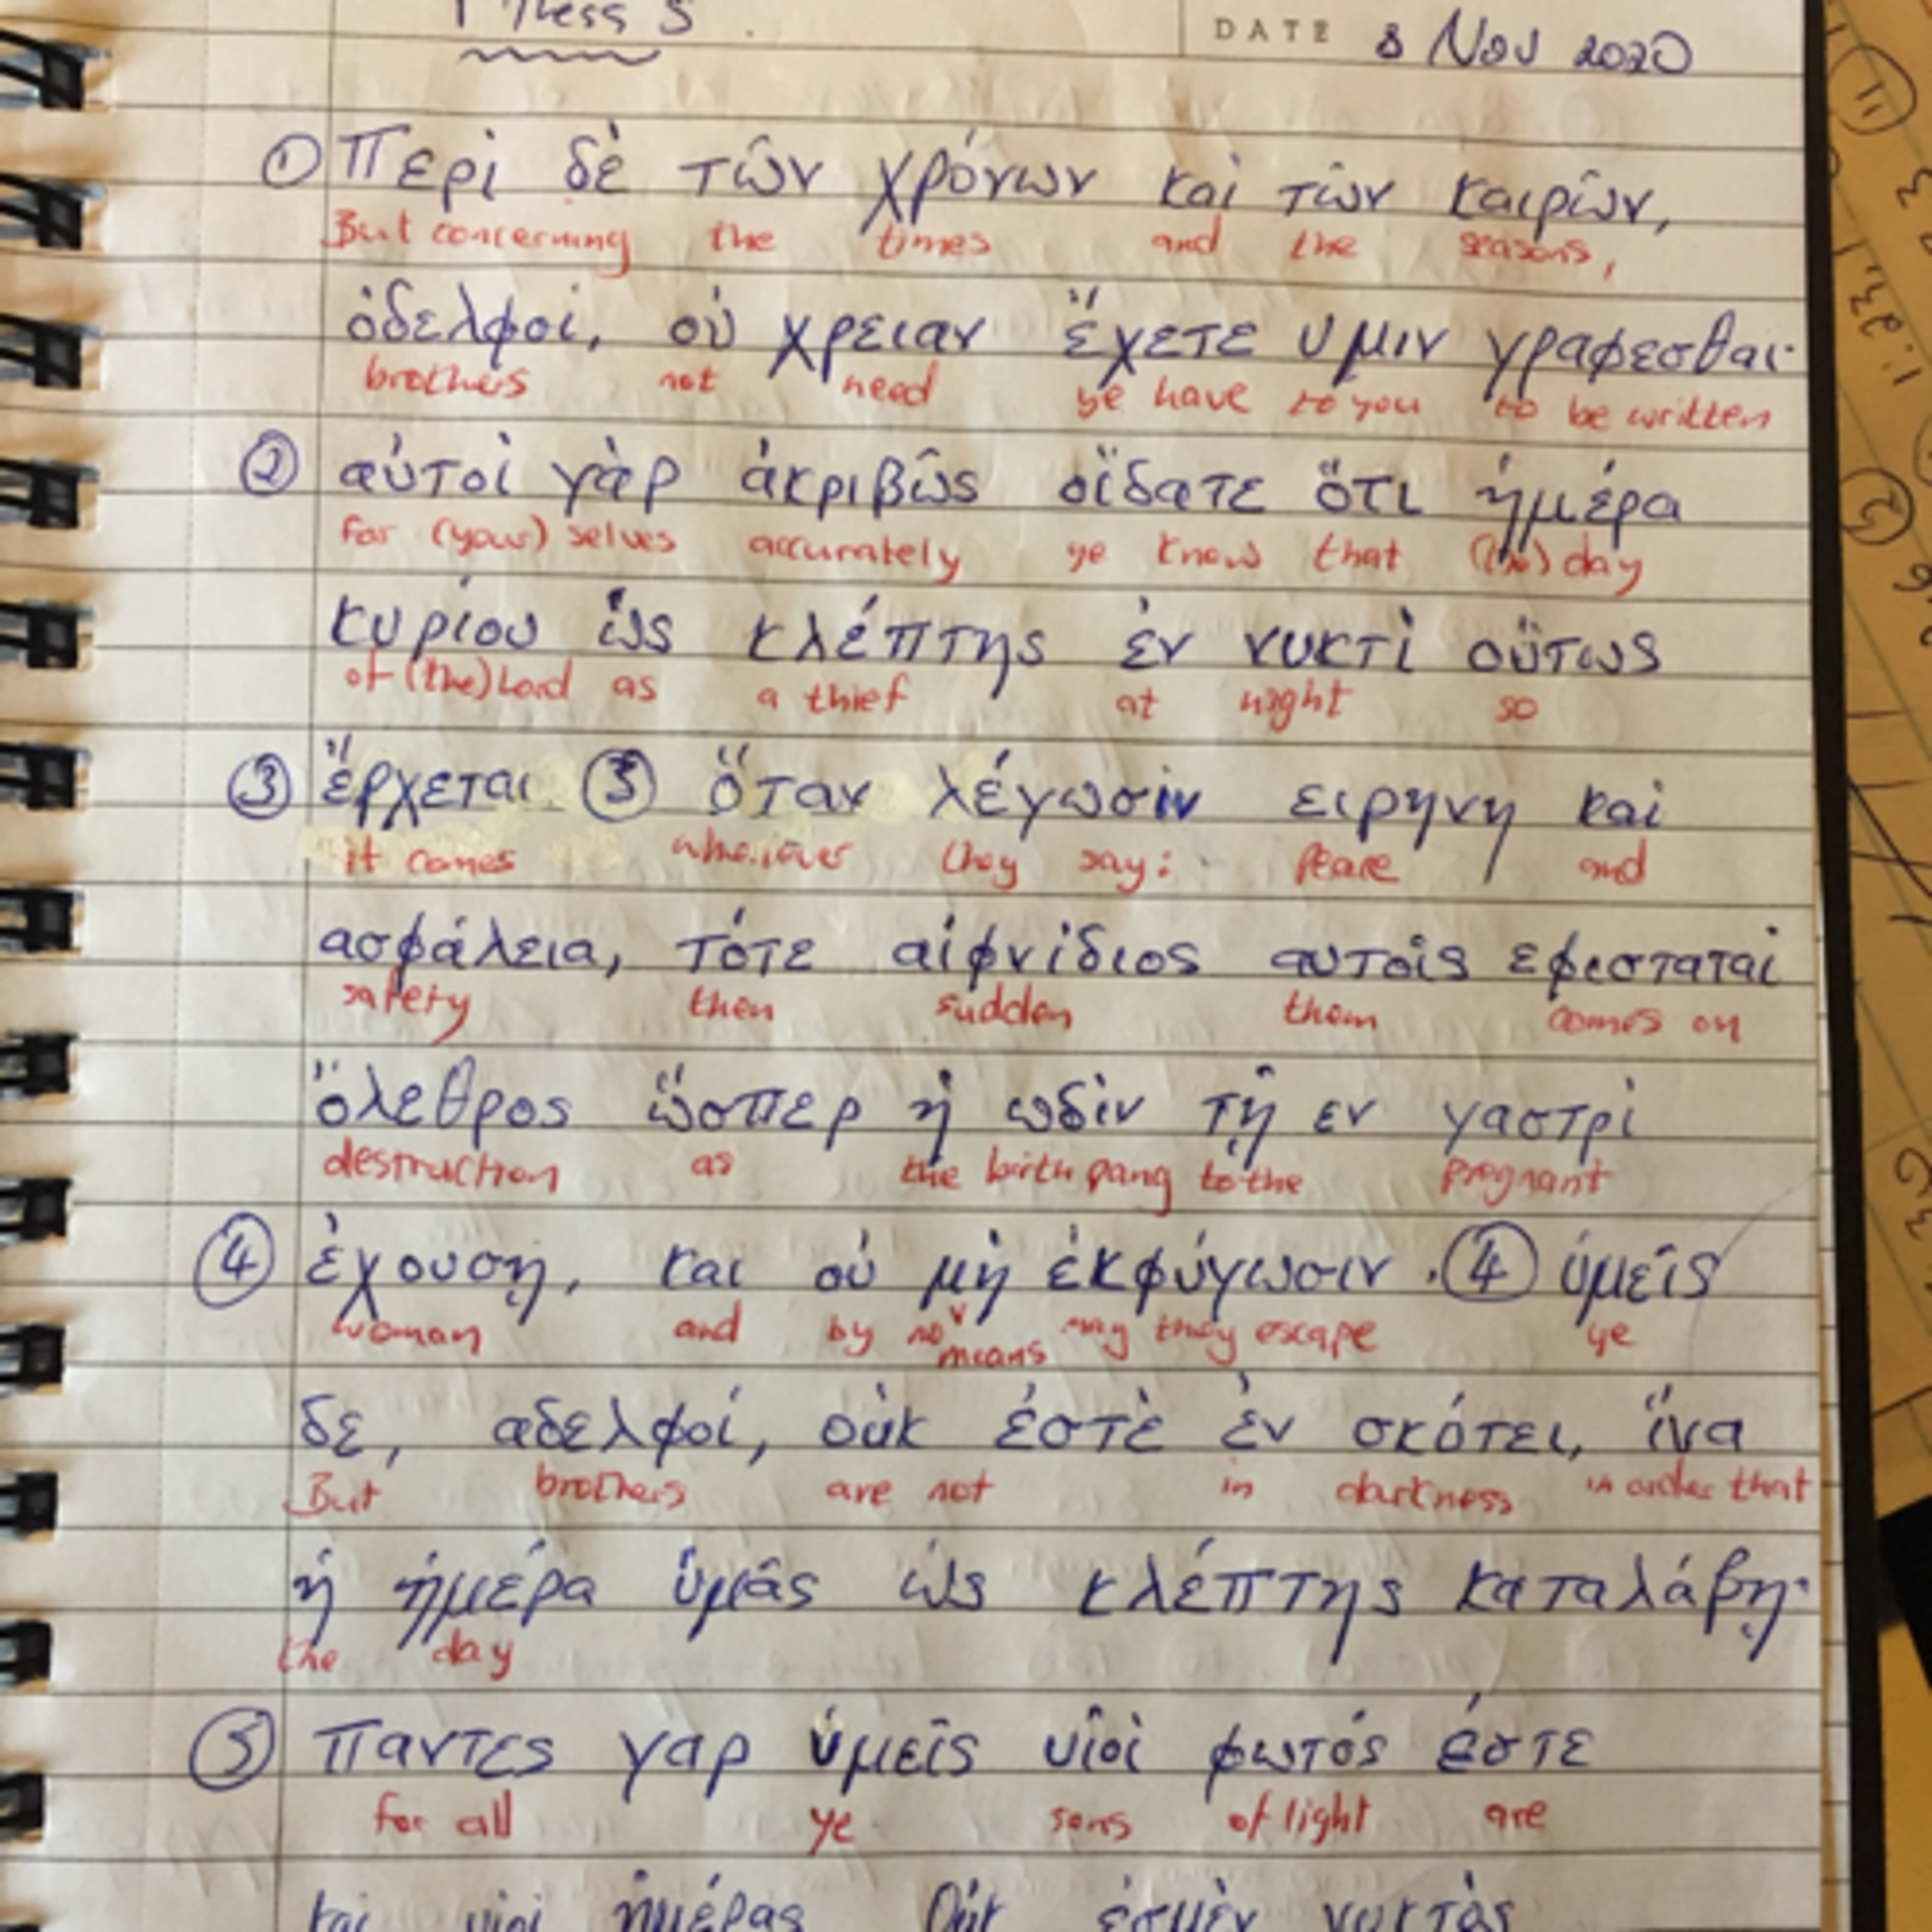 1 Thess 5
DATE 8 Nov 2020
① Περὶ δὲ τῶν χρόνων καὶ τῶν καιρῶν,
But concerning the times and the seasons,
ὀδελφοί, οὐ χρειαν ἔχετε υμιν γραφεσθαι·
brothers not need ye have to you to be written
② αὐτοὶ γὰρ ἀκριβῶς οἴδατε ὅτι ἡμέρα
for (your) selves accurately ye know that (the) day
κυρίου ὡς κλέπτης ἐν νυκτὶ οὕτως
of (the) Lord as a thief at night so
③ ἔρχεται ③ ὅταν λέγωσιν ειρηνη καὶ
it comes whenever they say: Peace and
ασφάλεια, τότε αἰφνίδιος αυτοίς εφισταταί
safety then sudden them comes on
ὄλεθρος ὥσπερ ἡ ωδὶν τῇ εν γαστρὶ
destruction as the birth pang to the pregnant
④ ἐχουσῃ, και οὐ μὴ ἐκφύγωσιν. ④ ὑμεῖς
woman and by no means may they escape ye
δε, αδελφοί, οὐκ ἐστὲ ἐν σκότει, ἵνα
But brothers are not in darkness in order that
ἡ ἡμέρα ὑμᾶς ὡς κλέπτης καταλάβῃ·
the day
⑤ παντες γαρ ὑμεῖς υἱοὶ φωτός έστε
for all ye sons of light are
και υἱοὶ ἡμέρας Οὐκ ἐσμὲν νυκτὸς